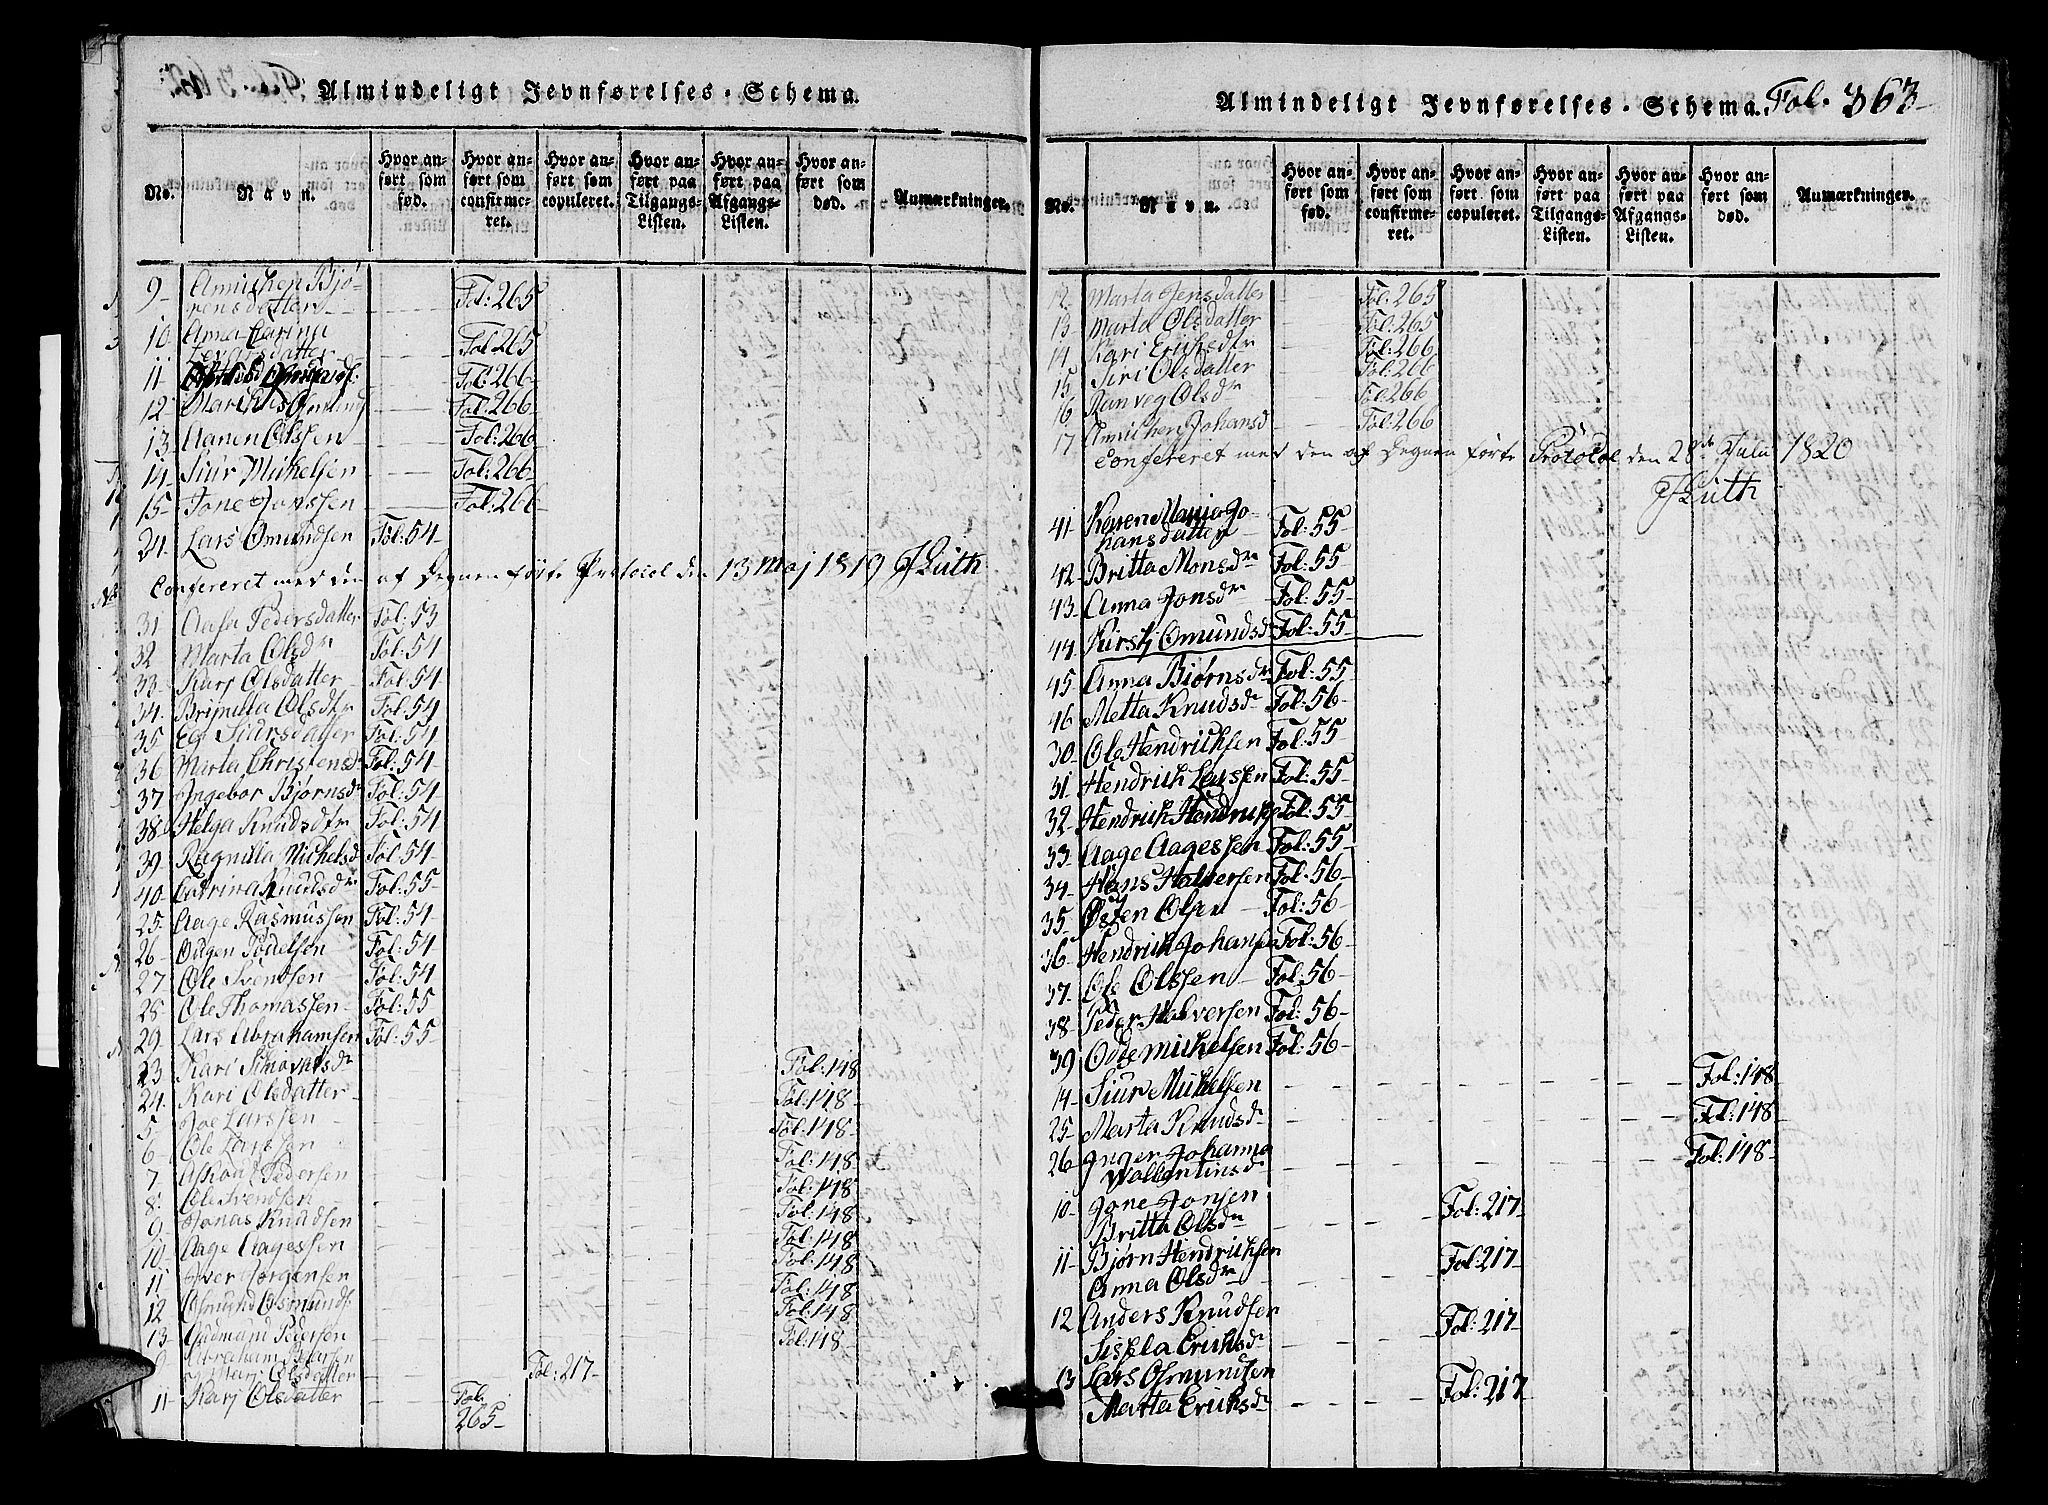 Almindeligt Jevnførelses-Schema.
No. Navn. Hvor anført som fød. Hvor anført som confirmeret. Hvor anført som copuleret. Hvor anført paa Tilgangs-Listen. Hvor anført paa Afgangs-Listen. Hvor anført som død. Anmærkninger.
9 Annichen Bjø-
rensdatter Fol: 265
10 Anna Carina Fol: 265
11 Fol: 266
12 Fol: 266
13 Aanen Olssen Fol: 266
14 Siur Michelsen Fol: 266
15 Tone Jonssen Fol: 266
24 Lars Omundsen Fol: 54
Confereret med den af Degnen førte Protocol den 13 Maj 1819 Lüth
31 Aasa Pedersdatter Fol: 53
32 Marta Olsdr Fol: 54
33 Karj Olsdatter Fol: 54
34 Olsdtr Fol: 54
35 Eg Siursdatter Fol: 54
36 Marta Christensd Fol: 54
37 Ingebor Bjørnsdr Fol: 54
38 Helga Knudsdtr Fol: 54
39 Ragnilla Michelsd Fol: 54
40 Catrina Knudsdr Fol: 55
25 Aage Rasmussen Fol: 54
26 Ougen Fol: 54
27 Ole Svendsen Fol: 54
28 Ole Thomassen Fol: 55
29 Lars Abrahamsen Fol: 55
23 Kari Fol: 148
24 Kari Olsdatter Fol: 148
5 Joe Larssen Fol: 148
6 Ole Larssen Fol: 148
7 Pedersen Fol: 148
8 Ole Svendsen Fol: 148
9 Jonas Knudsen Fol: 148
10 Aage Aagessen Fol: 148
11 Iver Jørgensen Fol: 148
12 Osmund Osmunds: Fol: 148
13 Gudmund Pedersen Fol: 148
Abraham
Marj Olsdatter Fol: 217
11 Karj Olsdatter Fol:
265
Almindeligt Jevnførelses-Schema. Fol. 363
No. Navn. Hvor anført som fød. Hvor anført som confirmeret. Hvor anført som copuleret. Hvor anført paa Tilgangs-Listen. Hvor anført paa Afgangs-Listen. Hvor anført som død. Anmærkninger.
12 Marta Jensdatter Fol: 265
13 Marta Olsdatter Fol: 265
14 Kari Erichsdtr Fol: 266
15 Siri Olsdatter Fol: 266
16 Ranveg Olsdr Fol: 266
17 Annichen Johansd Fol: 266
Confereret med den af Degnen førte Protocol den 28de Julii 1820
Lüth
41 Karen Maria Jo-
hansdatter Fol: 55
42 Britta Monsdr Fol: 55
43 Anna Jonsdr Fol: 55
44 Kirstj Omundsd Fol: 55
45 Anna Biørnsdr Fol: 55
46 Metta Knudsdr Fol: 56
30 Ole Hendrichsen Fol: 55
31 Hendrich Larssen Fol: 55
32 Hendrich Hendrichs Fol: 55
33 Aage Aagessen Fol: 55
34 Hans Halversen Fol: 56
35 Østen Olsen Fol: 56
36 Hendrich Johansen Fol: 56
37 Ole Olssen Fol: 56
38 Peder Halversen Fol: 56
39 Odde Michelsen Fol: 56
14 Siur Michelsen Fol: 148
25 Marta Knudsdr Fol: 148
26 Inger Johanna
Wallentinsdr Fol: 148
10 Jone Jonsen
Britta Olsdr Fol: 217
11 Bjørn Hendrichsen
Anna Olsdr Fol: 217
12 Anders Knudsen
Sissela Erichsdr Fol: 217
13 Lars Osmundsen
Martta Erichsdr Fol: 217